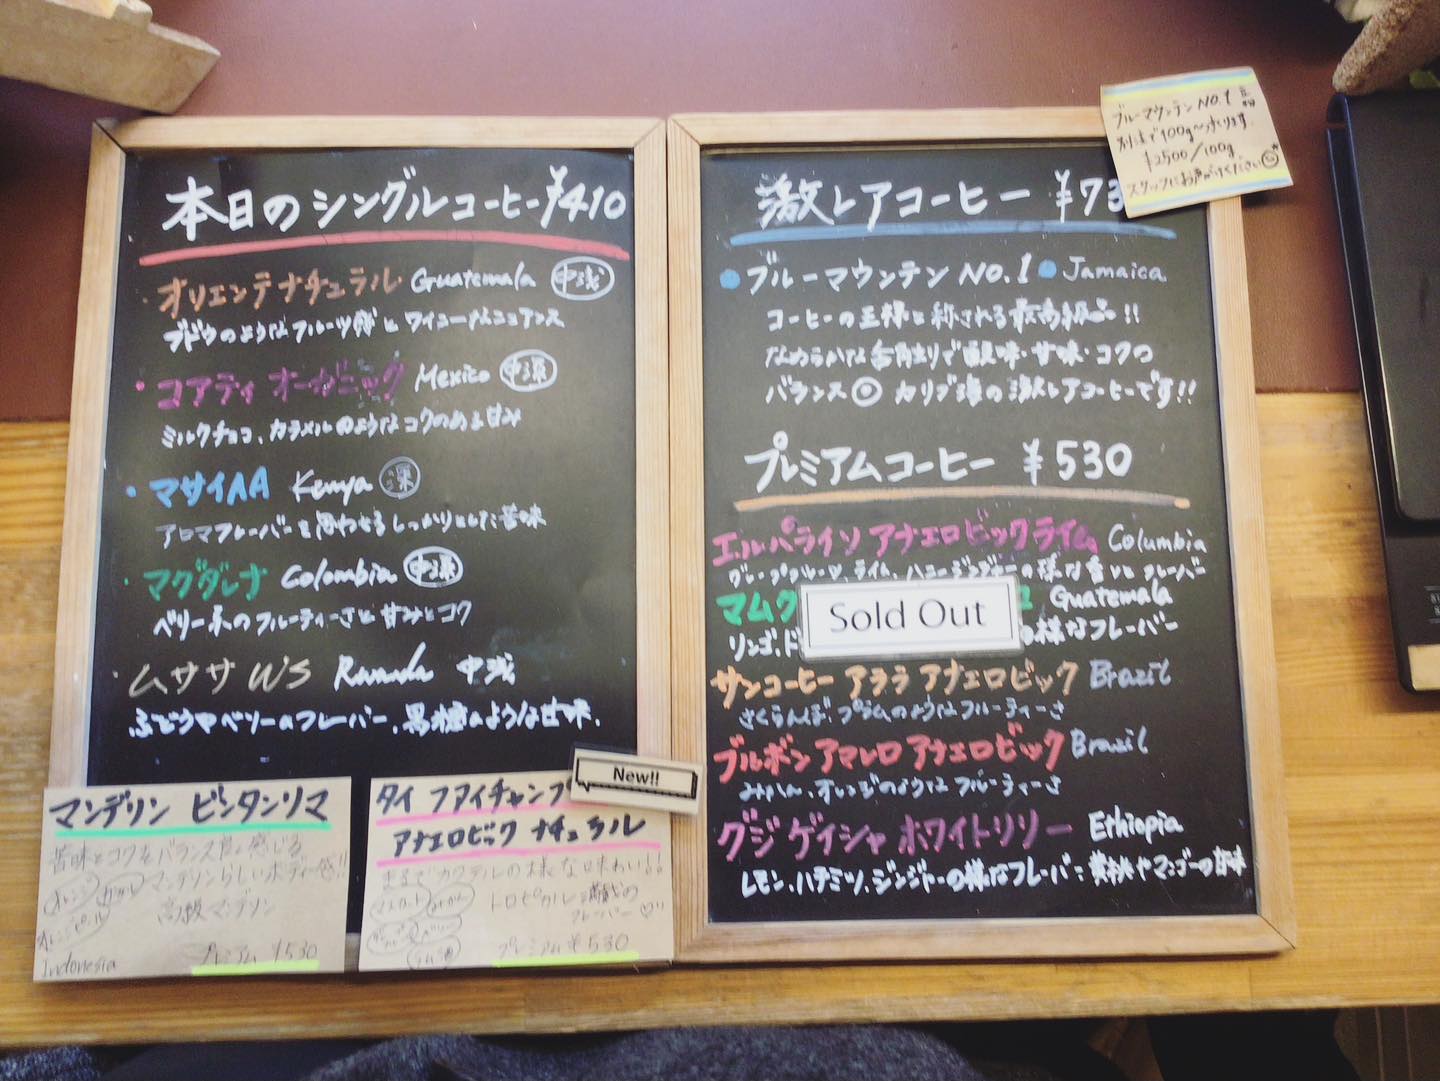 本日のシングルコーヒー ¥410
・オリエンテナチュラル Guatemala 中浅
ブドウのようなフルーツ感とワイニーなニュアンス
・コアティ オーガニック Mexico 中深
ミルクチョコ、カラメルのようなコクのある甘み
・マサイAA Kenya 深
アロマフレーバーを思わせるしっかりとした苦味
・マグダレナ Colombia 中深
ベリー系のフルーティーさと甘みとコク
・ムササ WS Rwanda 中浅
ぶどうやベリーのフレーバー、黒糖のような甘味.
マンデリン ビンタンリマ
苦味とコクをバランス良く感じる
マンデリンらしいボディー感!!
高級マンデリン
プレミアム ¥530
Indonesia
New!!
タイ ファイチャンプ
アナエロビック ナチュラル
まるでカクテルの様な味わい!!
トロピカル満載の
フレーバー♡!!
プレミアム ¥530
激レアコーヒー ¥73
ブルーマウンテン NO.1
¥2500/100g
スタッフにお声がけください
ブルーマウンテン NO.1 Jamaica
コーヒーの王様と称される最高級品!!
なめらかな舌触りで酸味・甘味・コクの
バランス◎ カリブ海の激レアコーヒーです!!
プレミアムコーヒー ¥530
エルパライソ アナエロビックライム Columbia
グレープフルーツ、ライム、ハニージンジャーの様な香りとフレーバー
マムク Guatemala
Sold Out
リンゴ、ド の様なフレーバー
サンコーヒー アララ アナエロビック Brazil
さくらんぼ、プラムのようなフルーティーさ
ブルボン アマレロ アナエロビック Brazil
みかん、オレンジのようなフルーティーさ
グジ ゲイシャ ホワイトリリー Ethiopia
レモン、ハチミツ、ジンジャーの様なフレーバー:黄桃やマンゴーの甘味